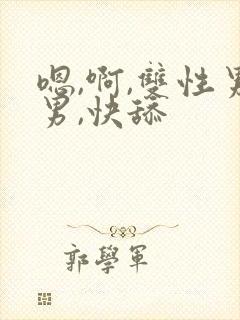 嗯,啊,雙性男
男,快舔
郭學軍